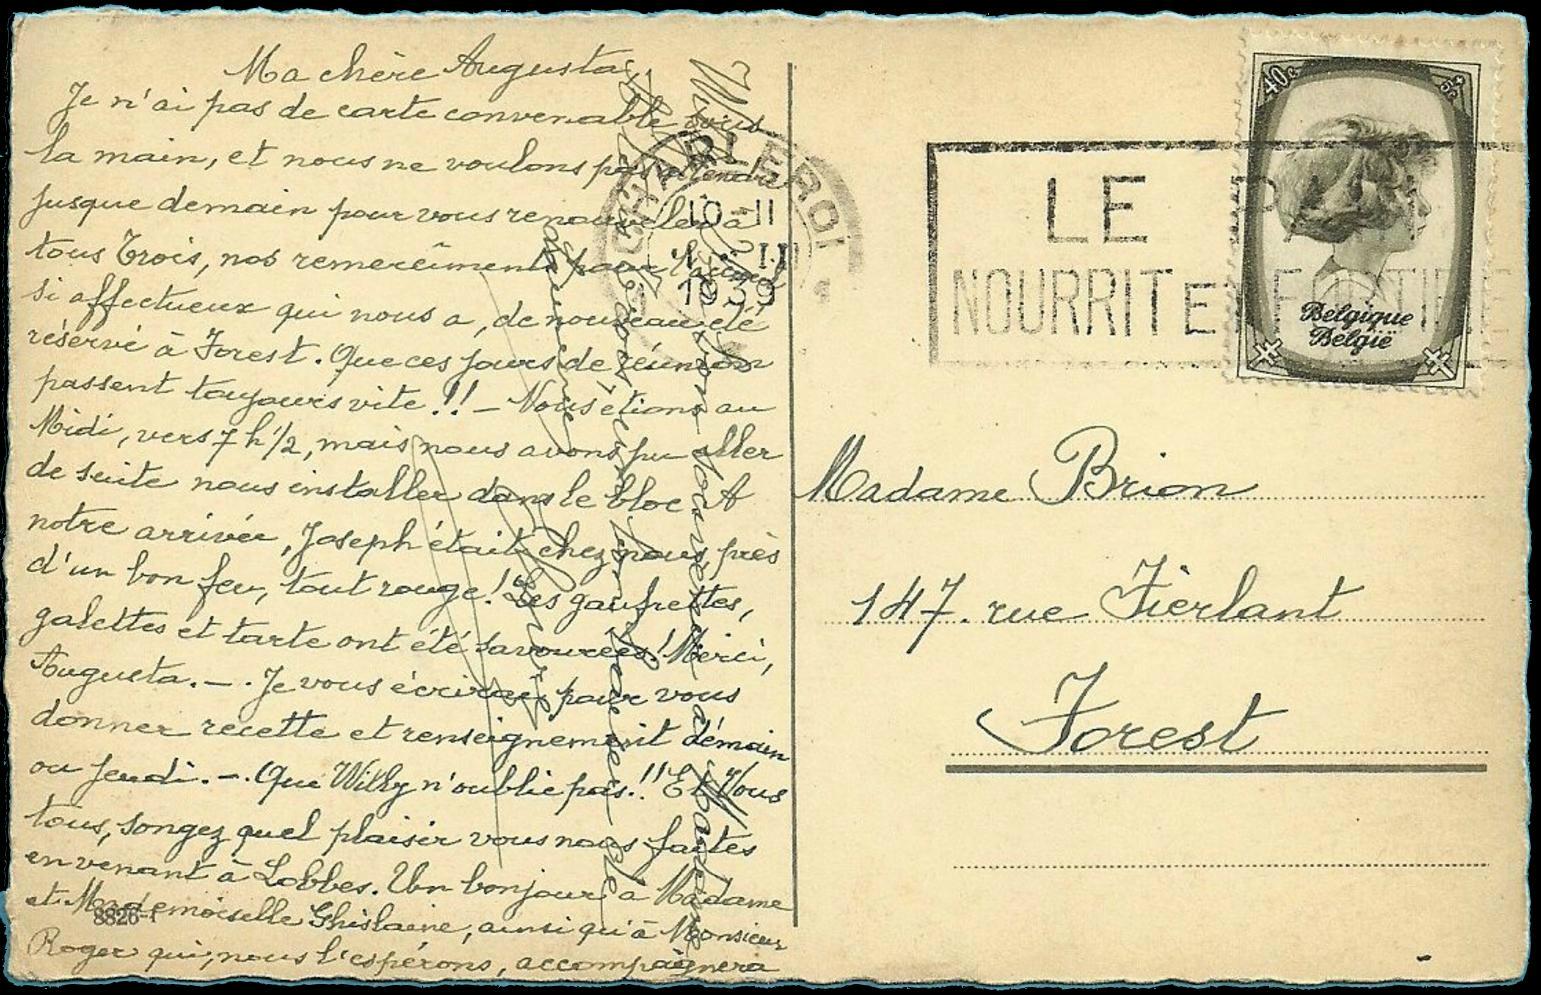 Ma chère Augusta,
Je n'ai pas de carte convenable sous
la main, et nous ne voulons pas attendre
jusque demain pour vous renouveler à
tous Trois, nos remercîments pour l'accueil
si affectueux qui nous a, de nouveau été
réservé à Forest. Que ces jours de réunion
passent toujours vite!! — Nous étions au
Midi, vers 7 h 1/2, mais nous avons pu aller
de suite nous installer dans le bloc A
notre arrivée, Joseph était chez nous, près
d'un bon feu, tout rouge! Les gaufrettes,
galettes et tarte ont été savourées! Merci,
Augusta. —. Je vous écrirai pour vous
donner recette et renseignement demain
ou jeudi. —. Que Willy n'oublie pas!! Et Vous
tous, songez quel plaisir vous nous faites
en venant à Lobbes. Un bonjour à Madame
et Mademoiselle Ghislaine, ainsi qu'à Monsieur
Roger qui, nous l'espérons, accompagnera
8826-1
CHARLEROI
10-11
1939
LE PAIN
NOURRIT ET FORTIFIE
40c
+5c
Belgique
België
Madame Brion
147. rue Fierlant
Forest